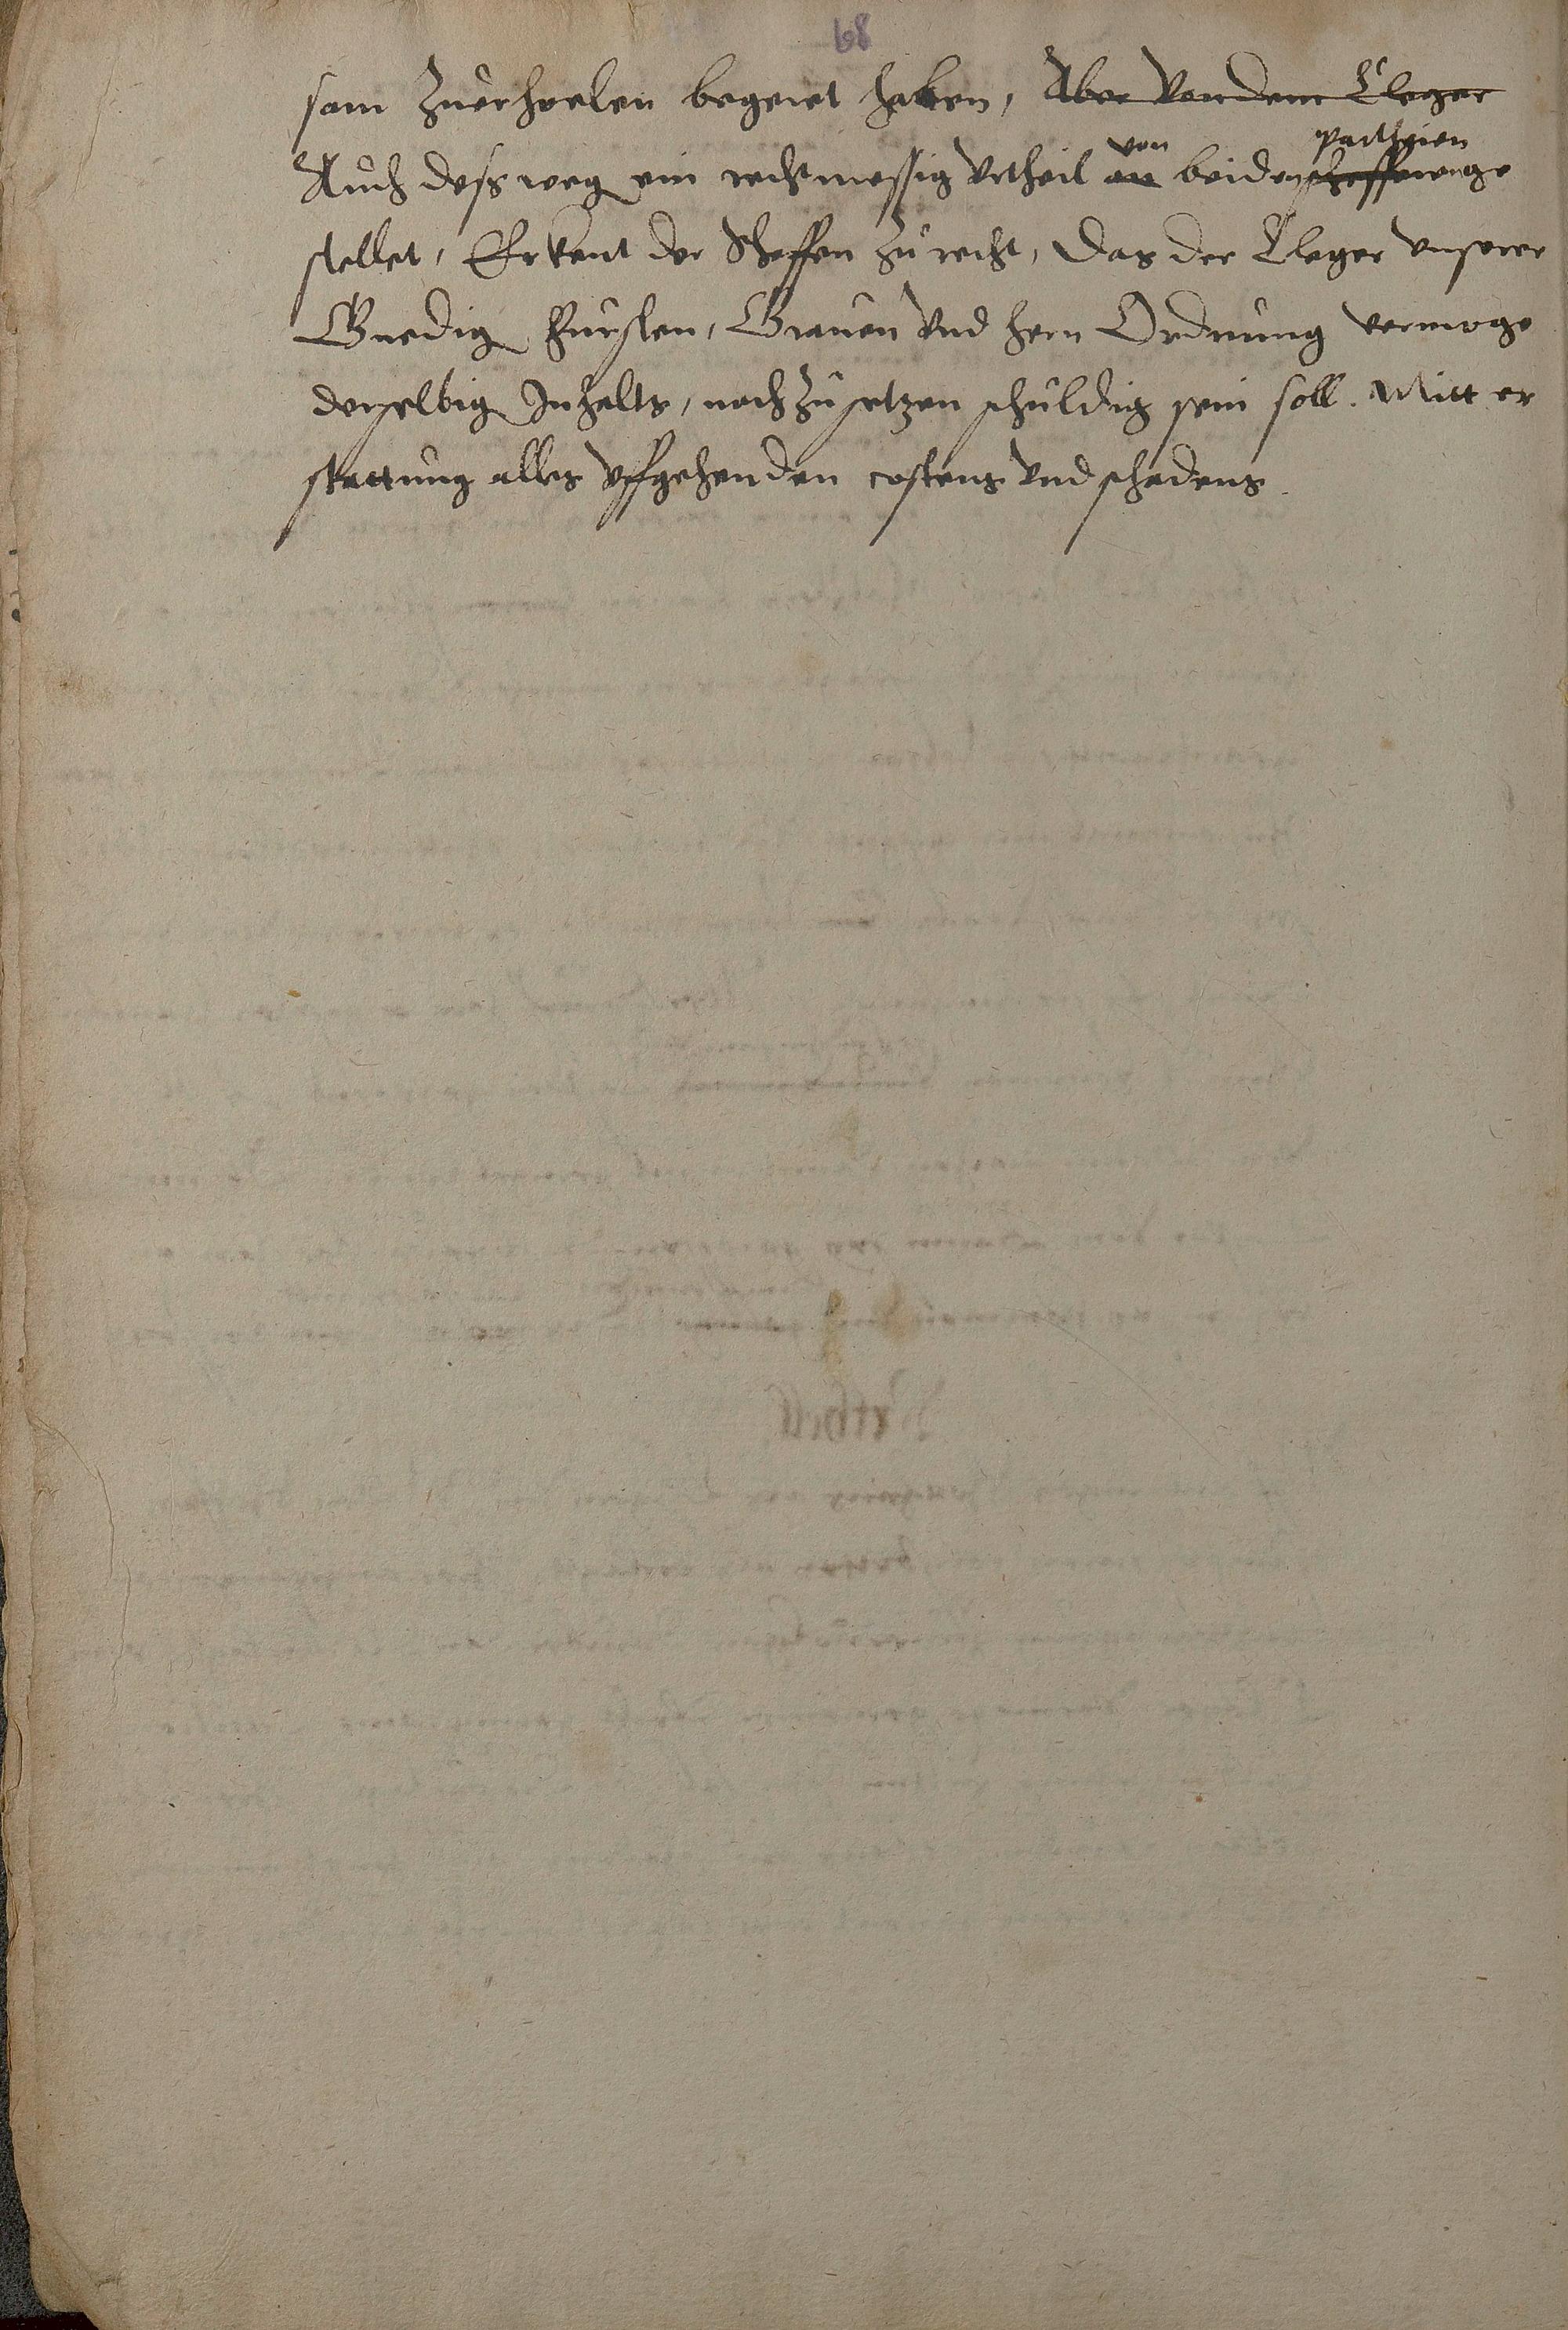 68
sam zuerhoelen begeret haben, Aber Von dem Cleger
von partheien
Auch dessweg ein rechtmessig Vrtheil an beiden scheffen ge
stellet, Erkent der Scheffen zu recht, Das der Cleger vnserer
Gnedig Fursten, Grauen Vnd hern Ordnung vermoge
derselbig Inhalts, nach zu setzen schuldig sein soll. Mitt er
stattung alles Vffgehenden costens Vnd schadens.